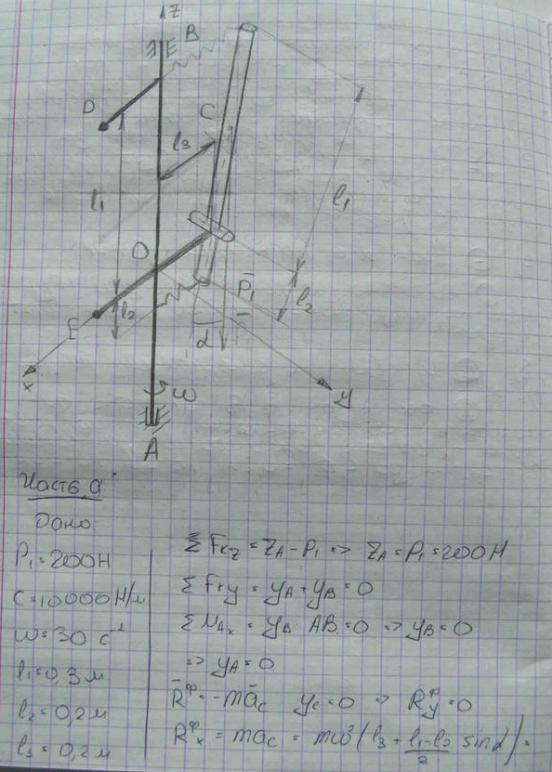 z
B
D
C
l3
l1
l1
O
P̄1
l2
E
l2
α
x
ω
y
A
Часть а
Дано:
P1=200Н
C=10000Н/м
ω=30 c⁻¹
l1=0,3м
l2=0,2м
l3=0,2м
ΣFкz = ZA-P1 => ZA=P1=200Н
ΣFкy = yA+yB=0
ΣMAx = yB AB=0 => yB=0
=> yA=0
R̄ᶲ=-māc yc=0 => Rᶲy=0
Rᶲx = mac = mω²(l3 + (l1-l2)/2 sinα)=